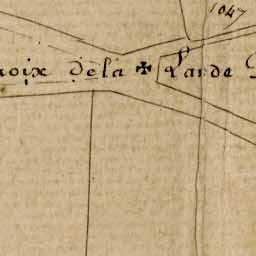 1047
roix dela ✠ Lande